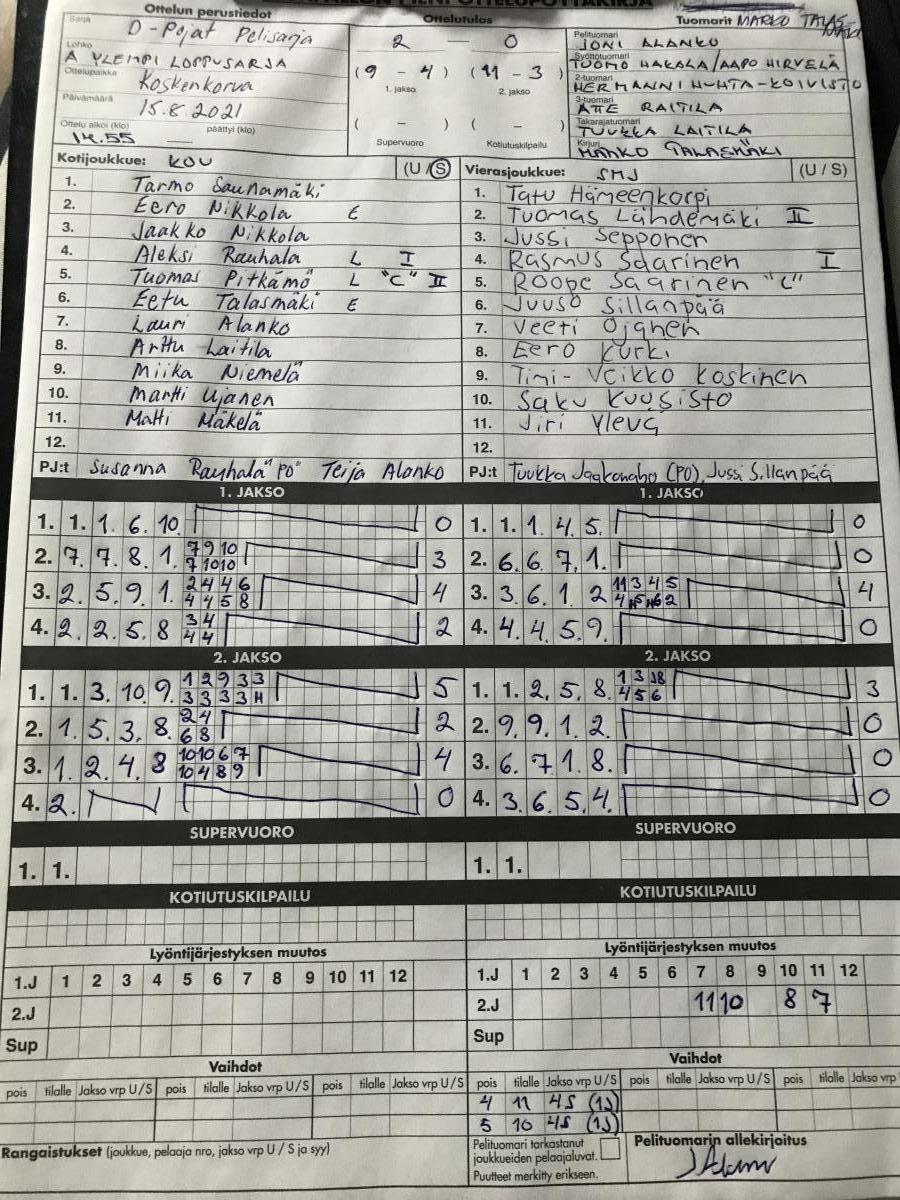 Ottelun perustiedot
Sarja D-Pojat Pelisarja
Lohko A YLEMPI LOPPUSARJA
Ottelupaikka Koskenkorva
Päivämäärä 15.8.2021
Ottelu alkoi (klo) 14.55 päättyi (klo)
Ottelutulos
2 — 0
(9 - 4) (11 - 3)
1. jakso 2. jakso
( - ) ( - )
Supervuoro Kotiutuskilpailu
Tuomarit MARKO TALASMÄKI
Pelituomari JONI ALANKO
Syöttötuomari TUOMO HAKALA/AAPO HIRVELÄ
2-tuomari HERMANNI HUHTA-KOIVISTO
3-tuomari ATTE RAITILA
Takarajatuomari TUUKKA LAITILA
Kirjuri MARKO TALASMÄKI
Kotijoukkue: KOU (U/S)
1. Tarmo Saunamäki
2. Eero Nikkola E
3. Jaakko Nikkola
4. Aleksi Rauhala L I
5. Tuomas Pitkämö L "C" II
6. Eetu Talasmäki E
7. Lauri Alanko
8. Arttu Laitila
9. Miika Niemelä
10. Martti Ujanen
11. Matti Mäkelä
12.
PJ:t Susanna Rauhala "PO" Teija Alanko
Vierasjoukkue: SMJ (U / S)
1. Tatu Hämeenkorpi
2. Tuomas Lähdemäki II
3. Jussi Sepponen
4. Rasmus Saarinen I
5. Roope Saarinen "C"
6. Juuso Sillanpää
7. Veeti Ojanen
8. Eero Kurki
9. Timi-Veikko Koskinen
10. Saku Kuusisto
11. Jiri Yleva
12.
PJ:t Tuukka Jaakonaho (PO), Jussi Sillanpää
1. JAKSO
1. 1. 1. 6. 10. 0
2. 7. 7. 8. 1. 7 9 10 3
7 10 10
3. 2. 5. 9. 1. 2 4 4 6 4
4 4 5 8
4. 2. 2. 5. 8 3 4 2
4 4
1. JAKSO
1. 1. 1. 4. 5. 0
2. 6. 6. 7. 1. 0
3. 3. 6. 1. 2 11 3 4 5 4
4. 4. 4. 5. 9. 0
2. JAKSO
1. 1. 3. 10. 9. 1 2 9 3 3 5
3 3 3 3 H
2. 1. 5. 3. 8. 2 4 2
6 8
3. 1. 2. 4. 8 10 10 6 7 4
10 4 8 9
4. 2. 0
2. JAKSO
1. 1. 2. 5. 8. 3
4 5 6
2. 9. 9. 1. 2. 0
3. 6. 7. 1. 8. 0
4. 3. 6. 5. 4. 0
SUPERVUORO
1. 1.
SUPERVUORO
1. 1.
KOTIUTUSKILPAILU
KOTIUTUSKILPAILU
Lyöntijärjestyksen muutos
1.J 1 2 3 4 5 6 7 8 9 10 11 12
2.J
Sup
Lyöntijärjestyksen muutos
1.J 1 2 3 4 5 6 7 8 9 10 11 12
2.J 11 10 8 7
Sup
Vaihdot
pois tilalle Jakso vrp U/S pois tilalle Jakso vrp U/S pois tilalle Jakso vrp U/S
Vaihdot
pois tilalle Jakso vrp U/S pois tilalle Jakso vrp U/S pois tilalle Jakso vrp
4 11 4S (1J)
5 10 4S (1J)
Rangaistukset (joukkue, pelaaja nro, jakso vrp U / S ja syy)
Pelituomari tarkastanut
joukkueiden pelaajaluvat.
Puutteet merkitty erikseen.
Pelituomarin allekirjoitus